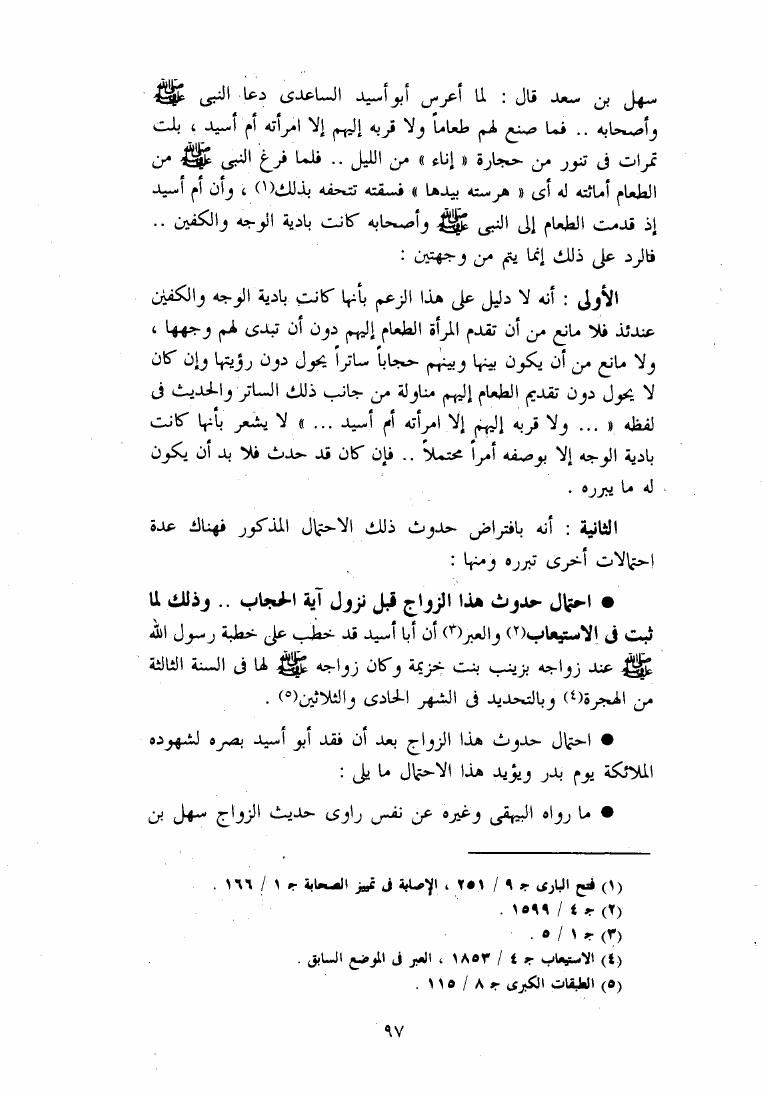 سهل بن سعد قال : لما أعرس أبو أسيد الساعدى دعا النبى ﷺ
وأصحابه .. فما صنع لهم طعاماً ولا قربه إليهم إلا امرأته أم أسيد ، بلت
تمرات فى تنور من حجارة « إناء » من الليل .. فلما فرغ النبى ﷺ من
الطعام أماثته له أى « هرسته بيدها » فسقته تتحفه بذلك(١) ، وأن أم أسيد
إذ قدمت الطعام إلى النبى ﷺ وأصحابه كانت بادية الوجه والكفين ..
فالرد على ذلك إنما يتم من وجهتين :
الأولى : أنه لا دليل على هذا الزعم بأنها كانت بادية الوجه والكفين
عندئذ فلا مانع من أن تقدم المرأة الطعام إليهم دون أن تبدى لهم وجهها ،
ولا مانع من أن يكون بينها وبينهم حجاباً ساتراً يحول دون رؤيتها وإن كان
لا يحول دون تقديم الطعام إليهم مناولة من جانب ذلك الساتر والحديث فى
لفظه « ... ولا قربه إليهم إلا امرأته أم أسيد ... » لا يشعر بأنها كانت
بادية الوجه إلا بوصفه أمراً محتملاً .. فإن كان قد حدث فلا بد أن يكون
له ما يبرره .
الثانية : أنه بافتراض حدوث ذلك الاحتمال المذكور فهناك عدة
احتمالات أخرى تبرره ومنها :
● احتمال حدوث هذا الزواج قبل نزول آية الحجاب .. وذلك لما
ثبت فى الاستيعاب(٢) والعبر(٣) أن أبا أسيد قد خطب على خطبة رسول الله
ﷺ عند زواجه بزينب بنت خزيمة وكان زواجه ﷺ لها فى السنة الثالثة
من الهجرة(٤) وبالتحديد فى الشهر الحادى والثلاثين(٥) .
● احتمال حدوث هذا الزواج بعد أن فقد أبو أسيد بصره لشهوده
الملائكة يوم بدر ويؤيد هذا الاحتمال ما يلى :
● ما رواه البيهقى وغيره عن نفس راوى حديث الزواج سهل بن
(١) فتح البارى جـ ٩ / ٢٥١ ، الإصابة فى تمييز الصحابة جـ ١ / ١٦٦ .
(٢) جـ ٤ / ١٥٩٩ .
(٣) جـ ١ / ٥ .
(٤) الاستيعاب جـ ٤ / ١٨٥٣ ، العبر فى الموضع السابق .
(٥) الطبقات الكبرى جـ ٨ / ١١٥ .
٩٧